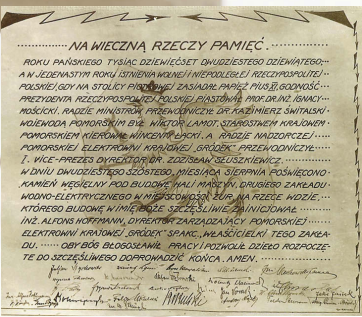 NA WIECZNĄ RZECZY PAMIĘĆ.
ROKU PAŃSKIEGO TYSIĄC DZIEWIĘĆSET DWUDZIESTEGO DZIEWIĄTEGO,
A W JEDENASTYM ROKU ISTNIENIA WOLNEJ I NIEPODLEGŁEJ RZECZYPOSPOLITEJ
POLSKIEJ, GDY NA STOLICY PIOTROWEJ ZASIADAŁ PAPIEŻ PIUS XI, GODNOŚĆ
PREZYDENTA RZECZYPOSPOLITEJ POLSKIEJ PIASTOWAŁ PROF. DR. INŻ. IGNACY
MOŚCICKI, RADZIE MINISTRÓW PRZEWODNICZYŁ DR. KAZIMIERZ ŚWITALSKI
WOJEWODĄ POMORSKIM BYŁ WIKTOR LAMOT, STAROSTWEM KRAJOWEM
POMORSKIEM KIEROWAŁ WINCENTY ŁĄCKI, A RADZIE NADZORCZEJ
POMORSKIEJ ELEKTROWNI KRAJOWEJ „GRÓDEK" PRZEWODNICZYŁ
I. VICE-PREZES DYREKTOR DR. ZDZISŁAW SŁUSZKIEWICZ.
W DNIU DWUDZIESTEGO SZÓSTEGO, MIESIĄCA SIERPNIA POŚWIĘCONO
KAMIEŃ WĘGIELNY POD BUDOWĘ HALI MASZYN, DRUGIEGO ZAKŁADU
WODNO-ELEKTRYCZNEGO W MIEJSCOWOŚCI ŻUR, NA RZECE WDZIE,
KTÓREGO BUDOWĘ W IMIĘ BOŻE SZCZĘŚLIWIE ZAINICJOWAŁ
INŻ. ALFONS HOFFMANN, DYREKTOR ZARZĄDZAJĄCY POMORSKIEJ
ELEKTROWNI KRAJOWEJ „GRÓDEK" SP. AKC., WŁAŚCICIELKI TEGO ZAKŁA-
DU. OBY BÓG BŁOGOSŁAWIŁ PRACY I POZWOLIŁ DZIEŁO ROZPOCZĘ-
TE DO SZCZĘŚLIWEGO DOPROWADZIĆ KOŃCA. AMEN.